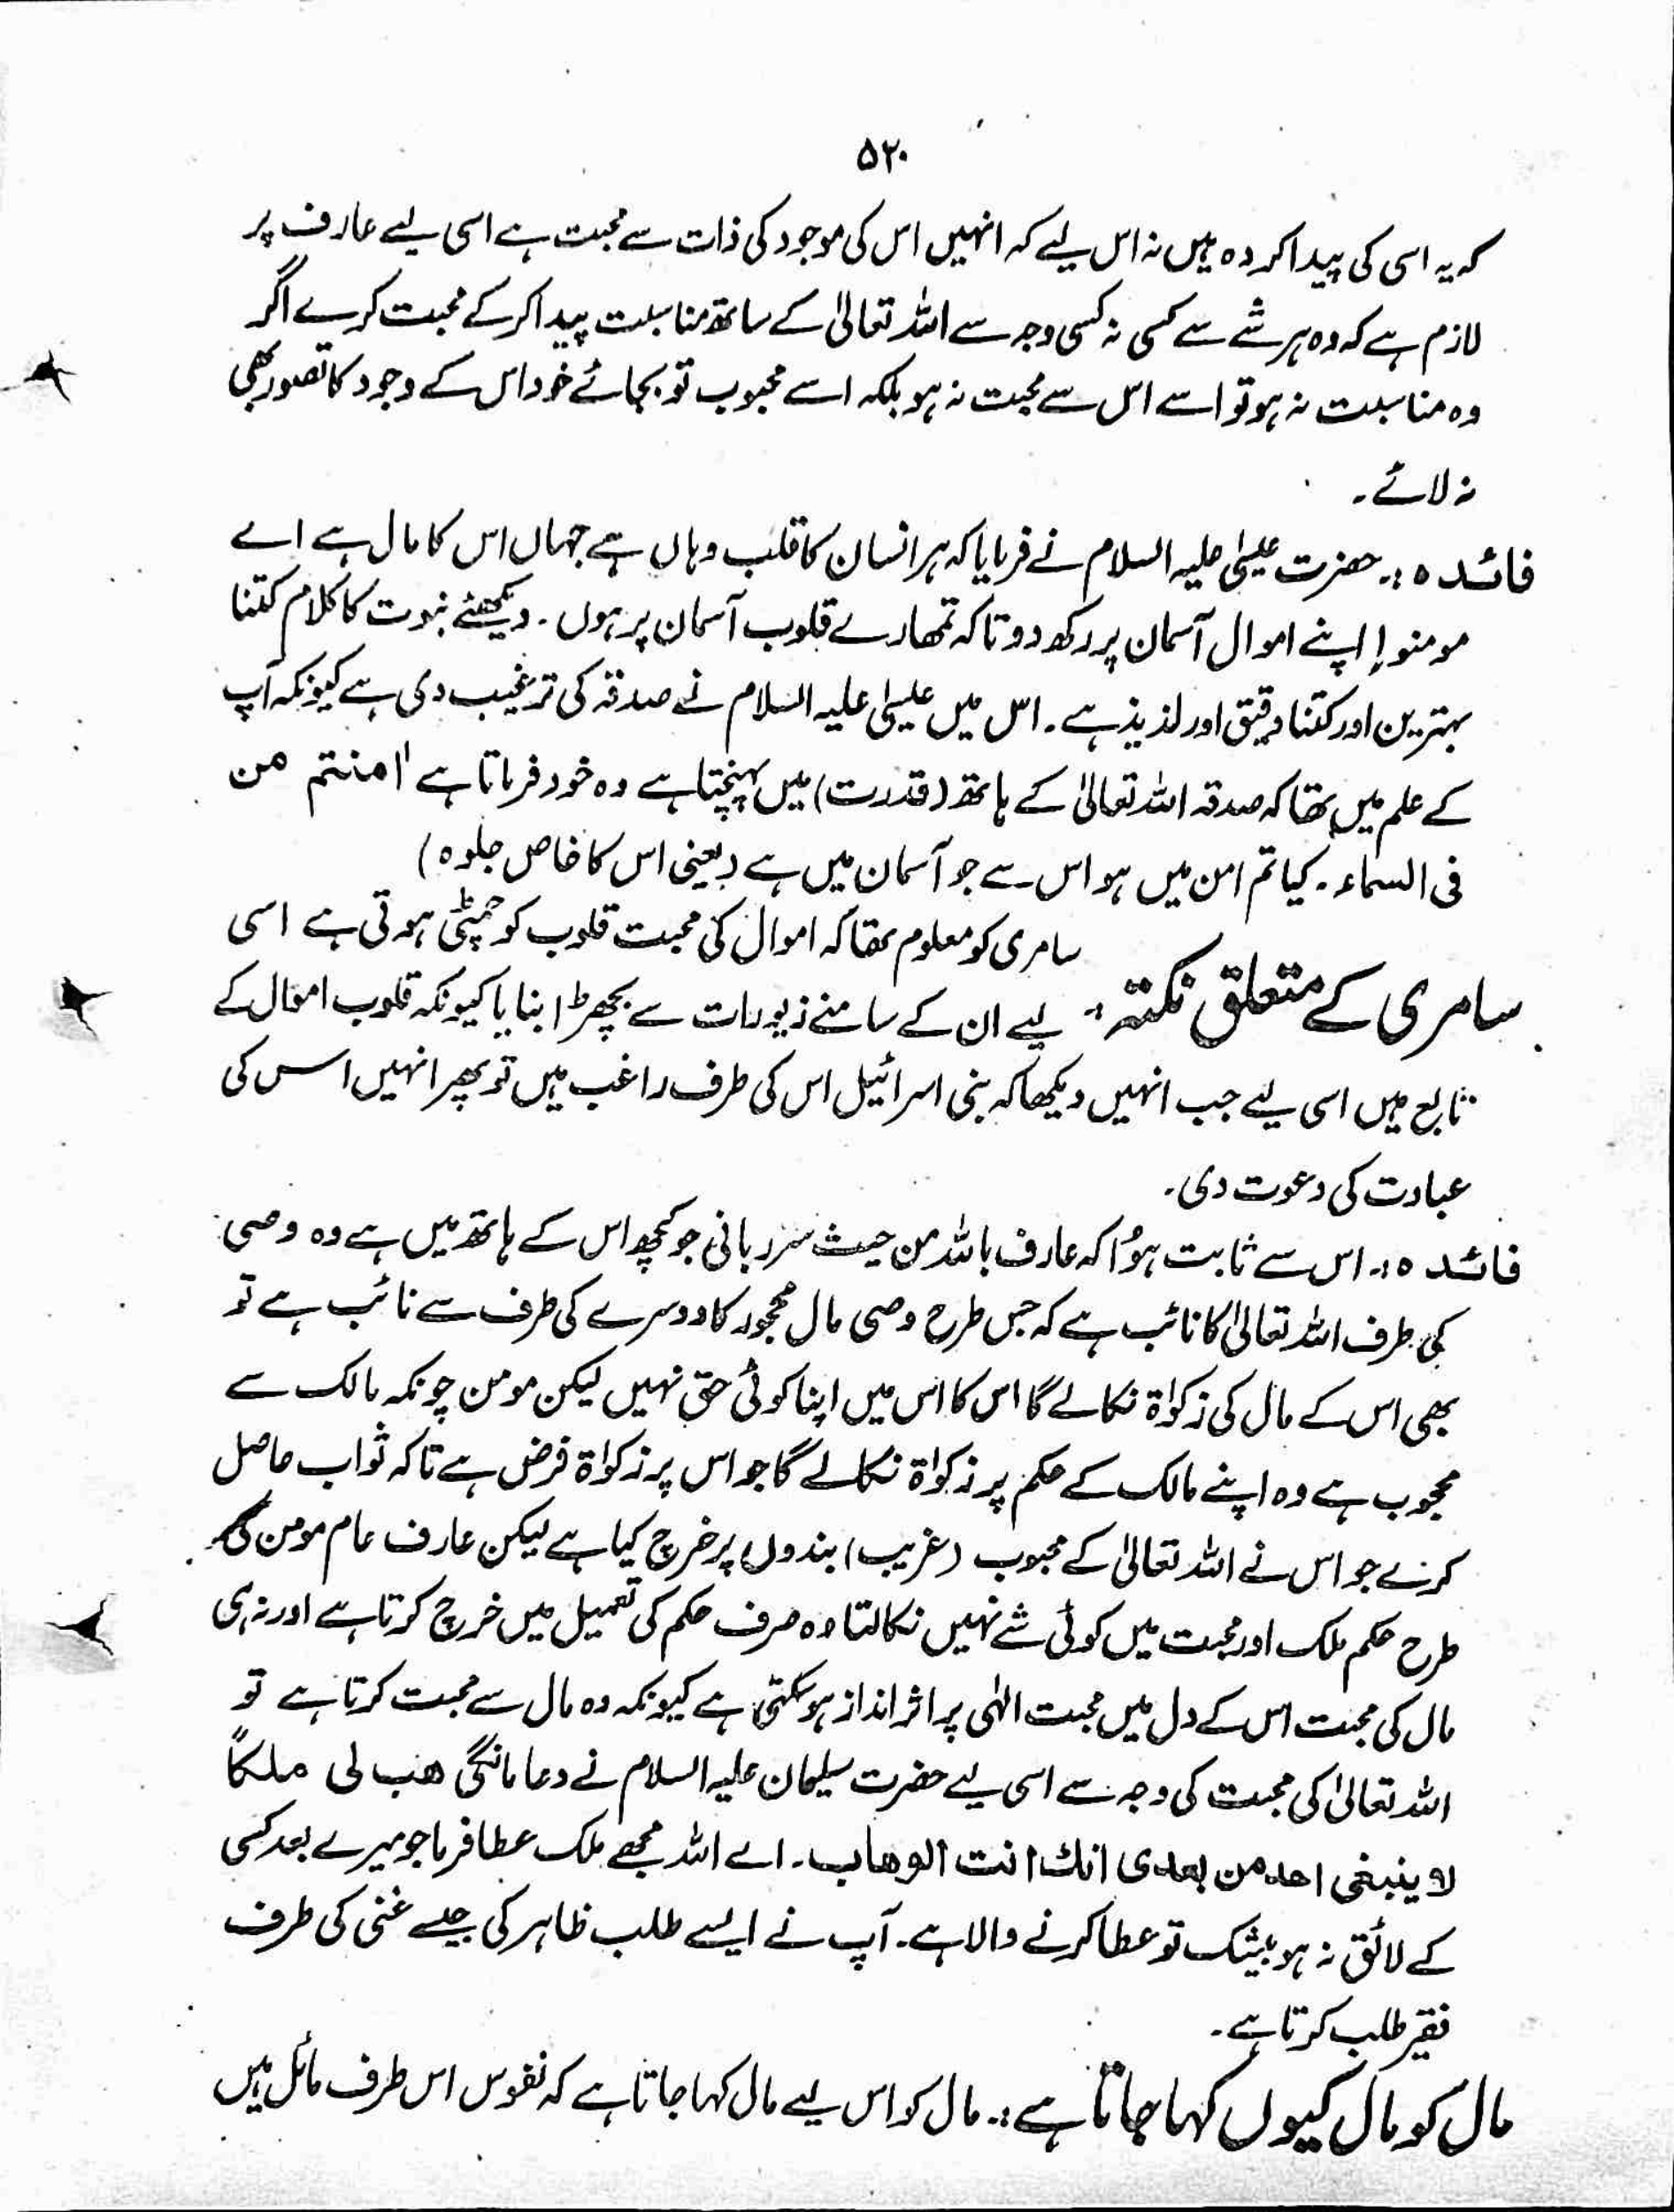 ۵۲۰
کہ یہ اسی کی پیدا کردہ ہیں نہ اس لیے کہ انہیں اس کی موجود کی ذات سے محبت ہے اسی لیے عارف پر
لازم ہے کہ وہ ہر شے سے کسی نہ کسی وجہ سے اللہ تعالیٰ کے ساتھ مناسبت پیدا کر کے محبت کرے اگر
وہ مناسبت نہ ہو تو اسے اس سے محبت نہ ہو بلکہ اسے محبوب تو بجائے خود اس کے وجود کا تصور بھی
نہ لائے۔
فائدہ :۔ حضرت عیسیٰ علیہ السلام نے فرمایا کہ ہر انسان کا قلب وہاں ہے جہاں اس کا مال ہے اے
مومنو! اپنے اموال آسمان پر رکھ دو تاکہ تمھارے قلوب آسمان پر ہوں ۔ دیکھئے نبوت کا کلام کتنا
بہترین اور کتنا دقیق اور لذیذ ہے ۔ اس میں عیسیٰ علیہ السلام نے صدقہ کی ترغیب دی ہے کیونکہ آپ
کے علم میں تھا کہ صدقہ اللہ تعالیٰ کے ہاتھ (قدرت) میں پہنچتا ہے وہ خود فرماتا ہے أامنتم من
فی السماء ۔ کیا تم امن میں ہو اس سے جو آسمان میں ہے (یعنی اس کا خاص جلوہ)
سامری کے متعلق نکتہ :۔ سامری کو معلوم تھا کہ اموال کی محبت قلوب کو چمٹی ہوتی ہے اسی
لیے ان کے سامنے زیورات سے بچھڑا بنایا کیونکہ قلوب اموال کے
تابع ہیں اسی لیے جب انہیں دیکھا کہ بنی اسرائیل اس کی طرف راغب ہیں تو پھر انہیں اس کی
عبادت کی دعوت دی۔
فائدہ :۔ اس سے ثابت ہؤا کہ عارف باللہ من حیث سر ربانی جو کچھ اس کے ہاتھ میں ہے وہ وصی
کی طرف اللہ تعالیٰ کا نائب ہے کہ جس طرح وصی مال محجور کا دوسرے کی طرف سے نائب ہے تو
بھی اس کے مال کی زکوٰۃ نکالے گا اس کا اس میں اپنا کوئی حق نہیں لیکن مومن چونکہ مالک سے
محجوب ہے وہ اپنے مالک کے حکم پر زکوٰۃ نکالے گا جو اس پر زکوٰۃ فرض ہے تاکہ ثواب حاصل
کرے جو اس نے اللہ تعالیٰ کے محبوب (غریب) بندوں پر خرچ کیا ہے لیکن عارف عام مومن کی
طرح حکم ملک اور محبت میں کوئی شے نہیں نکالتا وہ صرف حکم کی تعمیل میں خرچ کرتا ہے اور نہ ہی
مال کی محبت اس کے دل میں محبت الٰہی پر اثر انداز ہو سکتی ہے کیونکہ وہ مال سے محبت کرتا ہے تو
اللہ تعالیٰ کی محبت کی وجہ سے اسی لیے حضرت سلیمان علیہ السلام نے دعا مانگی ھب لی ملکاً
لا ینبغی احد من بعدی انك انت الوھاب۔ اے اللہ مجھے ملک عطا فرما جو میرے بعد کسی
کے لائق نہ ہو بیشک تو عطا کرنے والا ہے۔ آپ نے ایسے طلب ظاہر کی جیسے غنی کی طرف
فقیر طلب کرتا ہے۔
مال کو مال کیوں کہا جاتا ہے :۔ مال کو اس لیے مال کہا جاتا ہے کہ نفوس اس طرف مائل ہیں